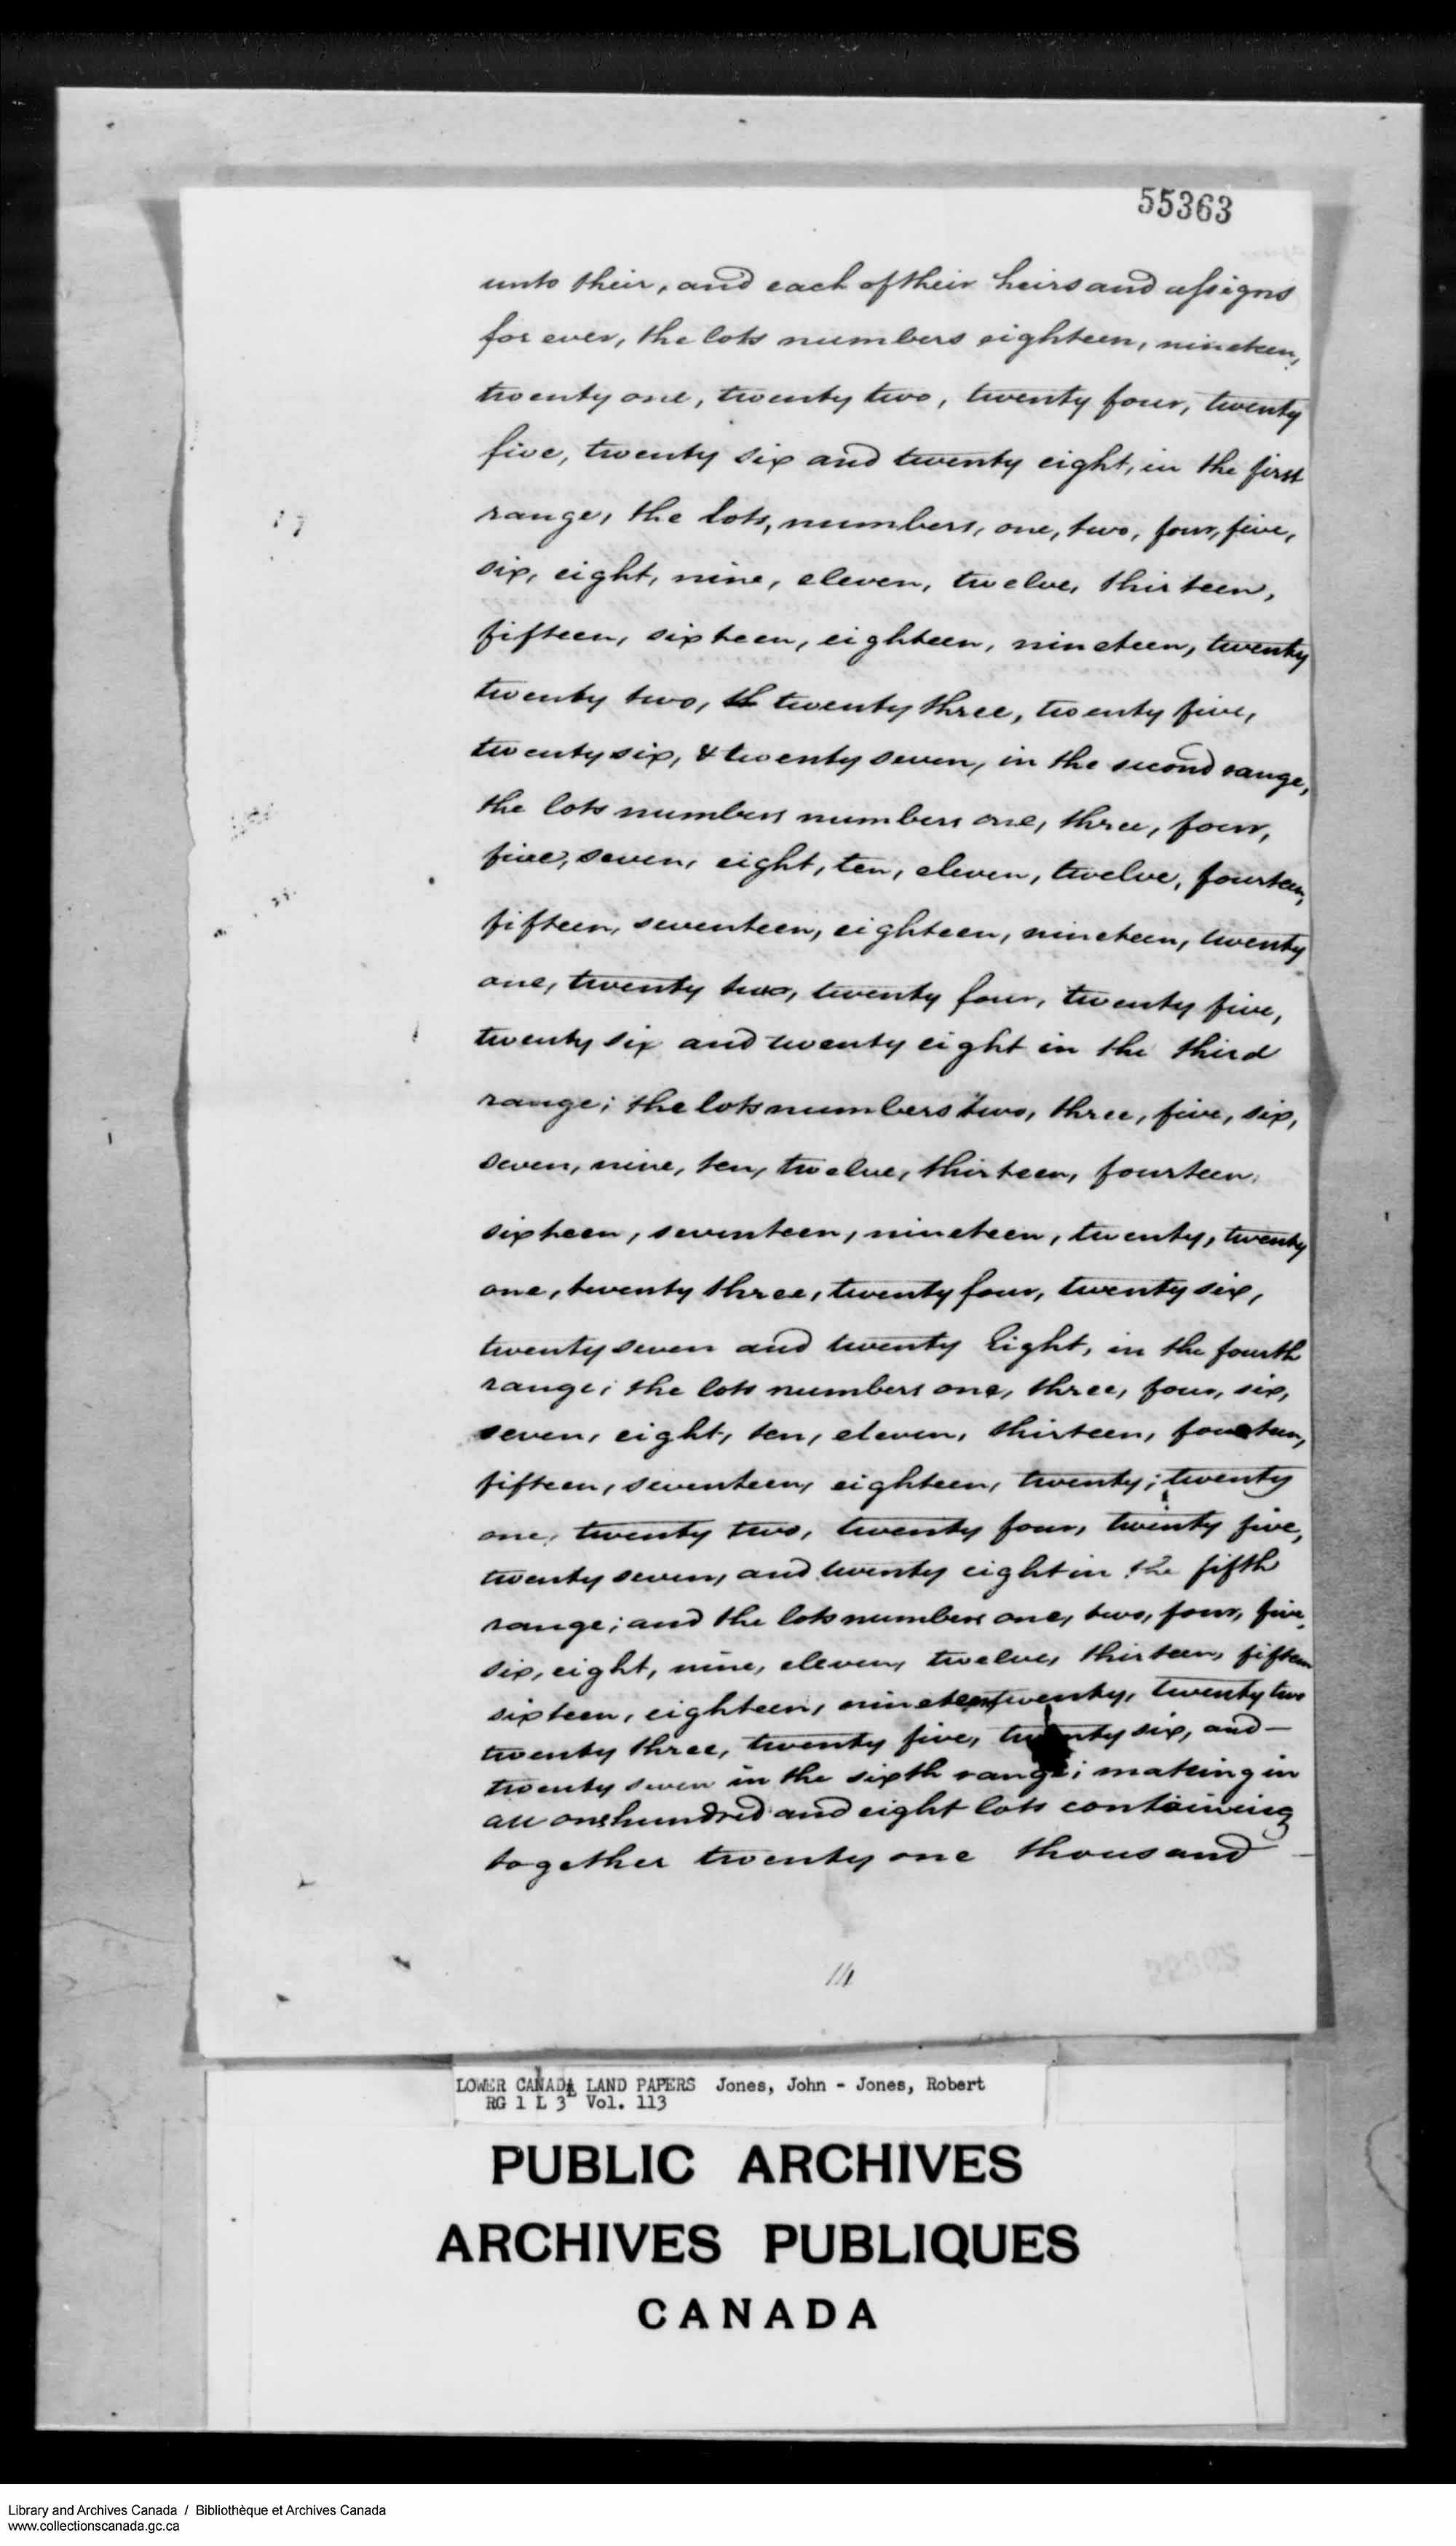 55363
unto their, and each of their heirs and assigns
for ever, the lots numbers eighteen, nineteen,
twenty one, twenty two, twenty four, twenty
five, twenty six and twenty eight, in the first
range, the lots, numbers, one, two, four, five,
six, eight, nine, eleven, twelve, thirteen,
fifteen, sixteen, eighteen, nineteen, twenty
twenty two, th twenty three, twenty five,
twenty six, & twenty seven, in the second range,
the lots numbers numbers one, three, four,
five, seven, eight, ten, eleven, twelve, fourteen,
fifteen, seventeen, eighteen, nineteen, twenty
one, twenty two, twenty four, twenty five,
twenty six and twenty eight in the third
range; the lots numbers two, three, five, six,
seven, nine, ten, twelve, thirteen, fourteen,
sixteen, seventeen, nineteen, twenty, twenty
one, twenty three, twenty four, twenty six,
twenty seven and twenty Eight, in the fourth
range; the lots numbers one, three, four, six,
seven, eight, ten, eleven, thirteen, fourteen,
fifteen, seventeen, eighteen, twenty; twenty
one, twenty two, twenty four, twenty five,
twenty seven, and twenty eight in the fifth
range; and the lots numbers one, two, four, five,
six, eight, nine, eleven, twelve, thirteen, fifteen
sixteen, eighteen, nineteen, twenty, twenty two
twenty three, twenty five, twenty six, and —
twenty seven in the sixth range; making in
all one hundred and eight lots containing
together twenty one thousand —
LOWER CANADA LAND PAPERS Jones, John - Jones, Robert
RG 1 L 3 Vol. 113
PUBLIC ARCHIVES
ARCHIVES PUBLIQUES
CANADA
Library and Archives Canada / Bibliothèque et Archives Canada
www.collectionscanada.gc.ca